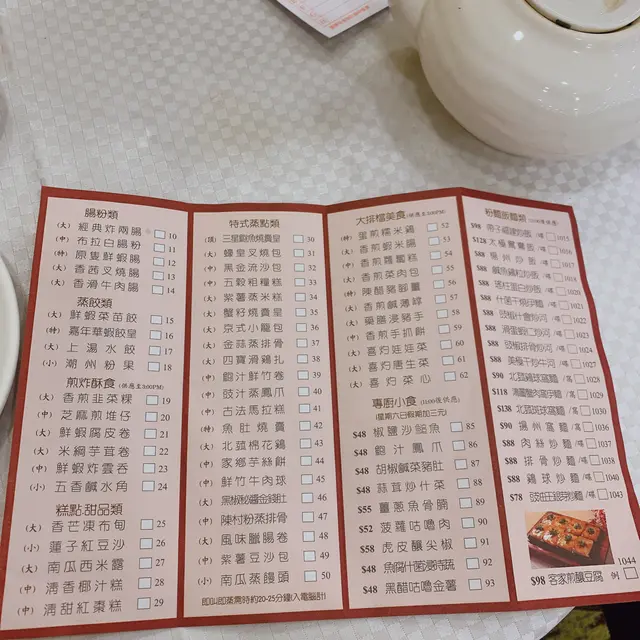 腸粉類
(大) 經典炸兩腸 10
(中) 布拉白腸粉 11
(特) 原隻鮮蝦腸 12
(大) 香茜叉燒腸 13
(中) 香滑牛肉腸 14
蒸餃類
(大) 鮮蝦菜苗餃 15
(特) 嘉年華蝦餃皇 16
(大) 上湯水餃 17
(小) 潮州粉果 18
煎炸酥食(供應至3:00PM)
(大) 香煎韭菜粿 19
(中) 芝麻煎堆仔 20
(大) 鮮蝦腐皮卷 21
(大) 米網芋茸卷 22
(中) 鮮蝦炸雲吞 23
(小) 五香鹹水角 24
糕點甜品類
(大) 香芒凍布甸 25
(小) 蓮子紅豆沙 26
(大) 南瓜西米露 27
(中) 清香椰汁糕 28
(中) 清甜紅棗糕 29
特式蒸點類
(頂) 三星鮑魚燒賣皇 30
(大) 蠔皇叉燒包 31
(中) 黑金流沙包 32
(中) 五穀粗糧糕 33
(大) 紫薯蒸米糕 34
(大) 蟹籽燒賣皇 35
(大) 京式小籠包 36
(大) 金蒜蒸排骨 37
(大) 四寶滑雞扎 38
(中) 鮑汁鮮竹卷 39
(中) 豉汁蒸鳳爪 40
(中) 古法馬拉糕 41
(特) 魚肚燒賣 42
(大) 北菇棉花雞 43
(中) 家鄉芋絲餅 44
(中) 鮮竹牛肉球 45
(大) 黑椒秘醬金錢肚 46
(中) 陳村粉蒸排骨 47
(大) 風味臘腸卷 48
(中) 紫薯豆沙包 49
(小) 南瓜蒸饅頭 50
即叫即蒸需特約20-25分鐘(入電腦計)
大排檔美食(供應至3:00PM)
(特) 皇煎糯米雞 52
(中) 香煎蝦米腸 53
(中) 香煎蘿蔔糕 54
(中) 香煎菜肉包 55
(特) 陳醋豬腳薑 56
(大) 香煎鹹薄罉 57
(大) 藥膳浸豬手 58
(中) 香煎手抓餅 59
(大) 喜灼娃娃菜 60
(大) 喜灼唐生菜 61
(大) 喜灼菜心 62
專廚小食(11:00後供應)
(星期六日假期加三元)
$48 椒鹽沙鯭魚 85
$48 鮑汁鳳爪 86
$48 胡椒鹹菜豬肚 87
$48 蒜茸炒什菜 88
$55 薑蔥魚骨腩 89
$52 菠蘿咕嚕肉 90
$58 虎皮釀尖椒 91
$48 92
$48 黑醋咕嚕金薯 93
粉麵飯類
$98 1015
$128 1016
$88 揚州炒飯 1017
$88 鹹魚雞粒炒飯 1018
$88 1019
$88 1020
$88 豉椒什會炒河 1023
$88 滑蛋蝦仁炒河 1024
$88 美極干炒牛河 1027
$90 1028
$118 1029
$138 1030
$90 揚州窩麵 1031
$88 肉絲炒麵 1034
$88 排骨炒麵 1038
$88 雞球炒麵 1040
$78 豉油王銀芽炒麵 1043
1044
$98 客家煎釀豆腐 例